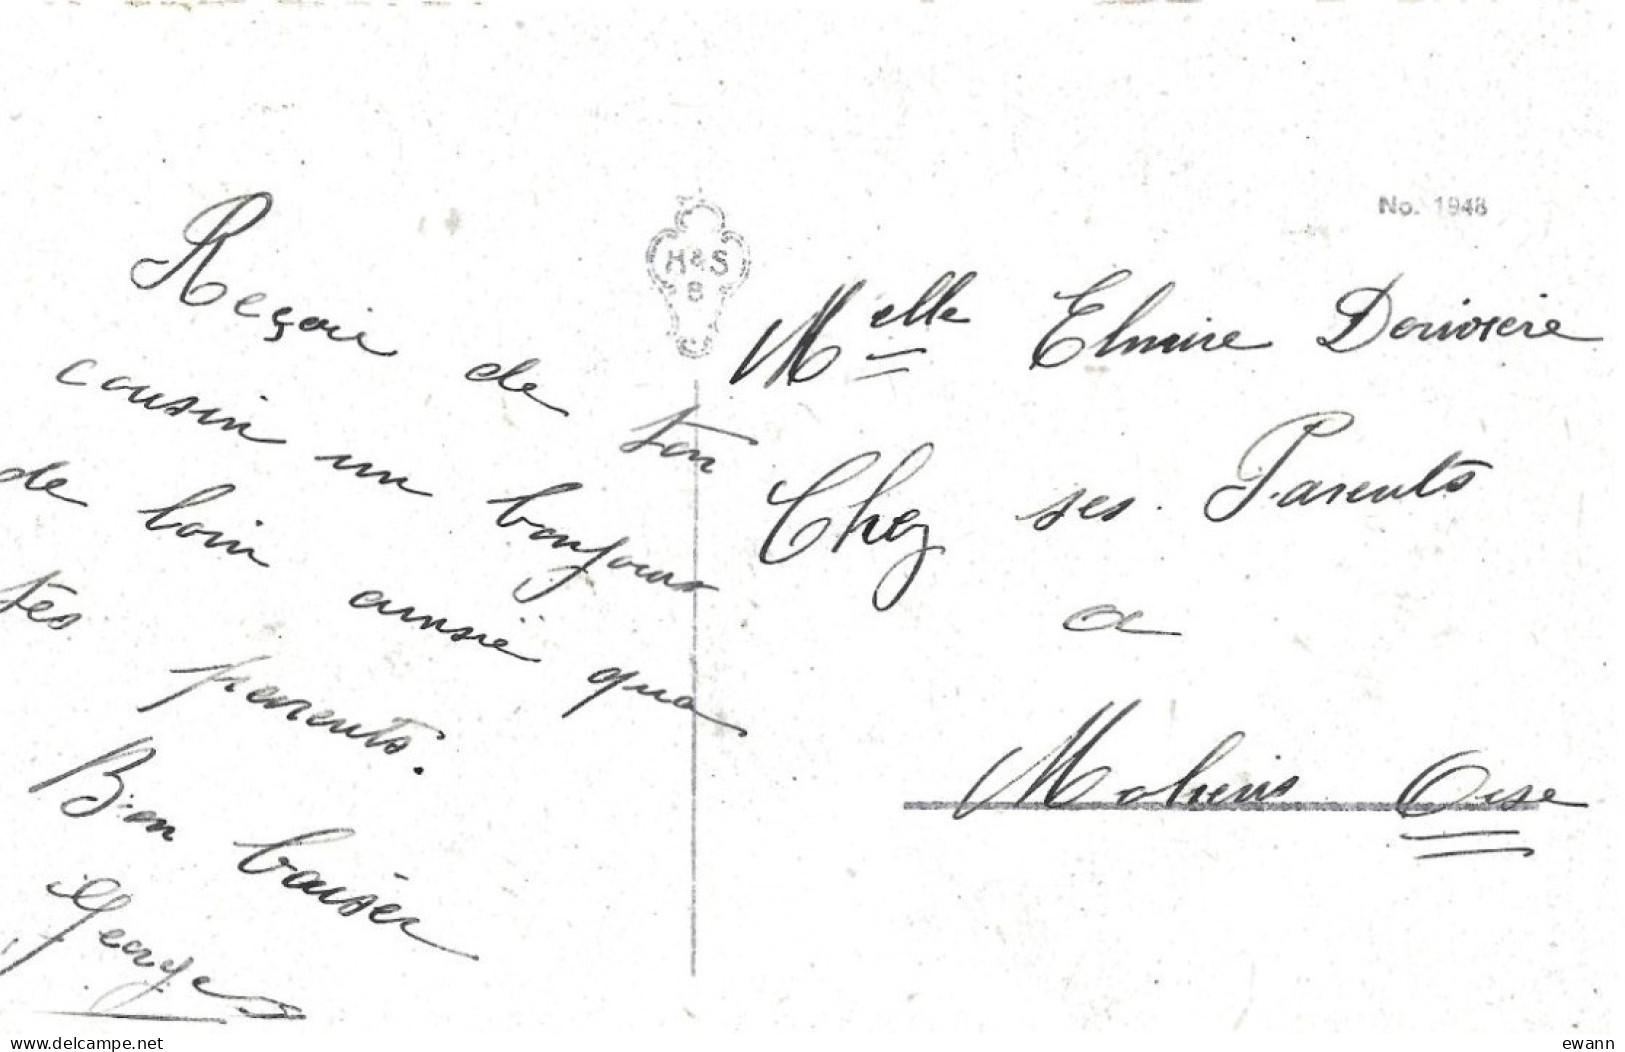 Reçoie de ton
cousin un bonjour
de loin aussie qua
tes parents.
Bon baiser
Georges
H & S
B
No. 1948
Melle Elmire Derivière
Chez ses Parents
a
Moliens Oise
delcampe.net
ewann